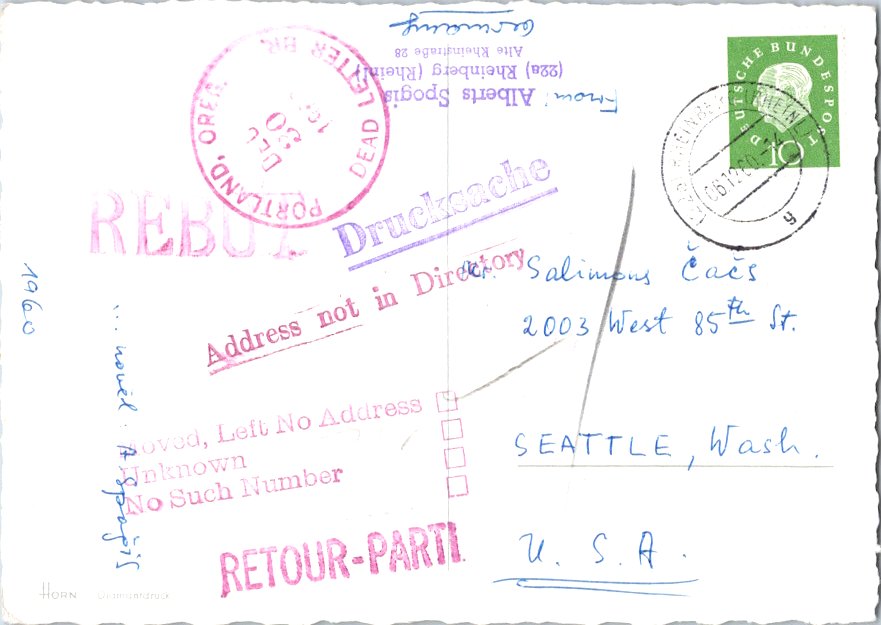 From:
Alberts Spogis
(22a) Rheinberg (Rheinl)
Alte Rheinstraße 28
Germany
DEUTSCHE BUNDESPOST
10
RHEINBERG (RHEINL)
06.12.60
a
PORTLAND, OREG.
DEAD LETTER BR.
DEC
20
REBUT
Drucksache
Address not in Directory
Mr. Salimons Čačs
2003 West 85th St.
SEATTLE, Wash.
U. S. A.
Moved, Left No Address
Unknown
No Such Number
RETOUR-PARTI
1960
... novēl A Spoģis
HORN